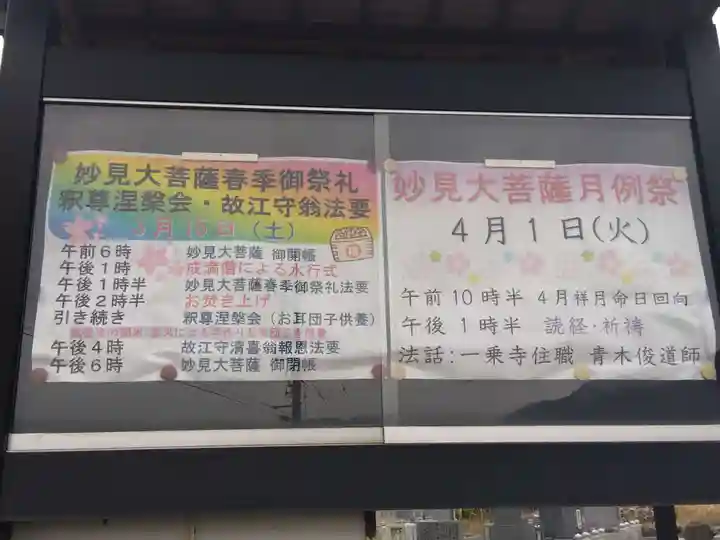 妙見大菩薩春季御祭礼
釈尊涅槃会・故江守翁法要
月15日(土)
午前6時 妙見大菩薩 御開帳
午後1時 成満僧による水行式
午後1時半 妙見大菩薩春季御祭礼法要
午後2時半 お焚き上げ
引き続き 釈尊涅槃会(お耳団子供養)
午後4時 故江守清喜翁報恩法要
午後6時 妙見大菩薩 御閉帳
妙見大菩薩月例祭
4月1日(火)
午前10時半 4月祥月命日回向
午後1時半 読経・祈祷
法話:一乗寺住職 青木俊道師